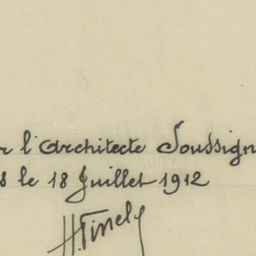 r l'architecte Soussign
8 le 18 Juillet 1912